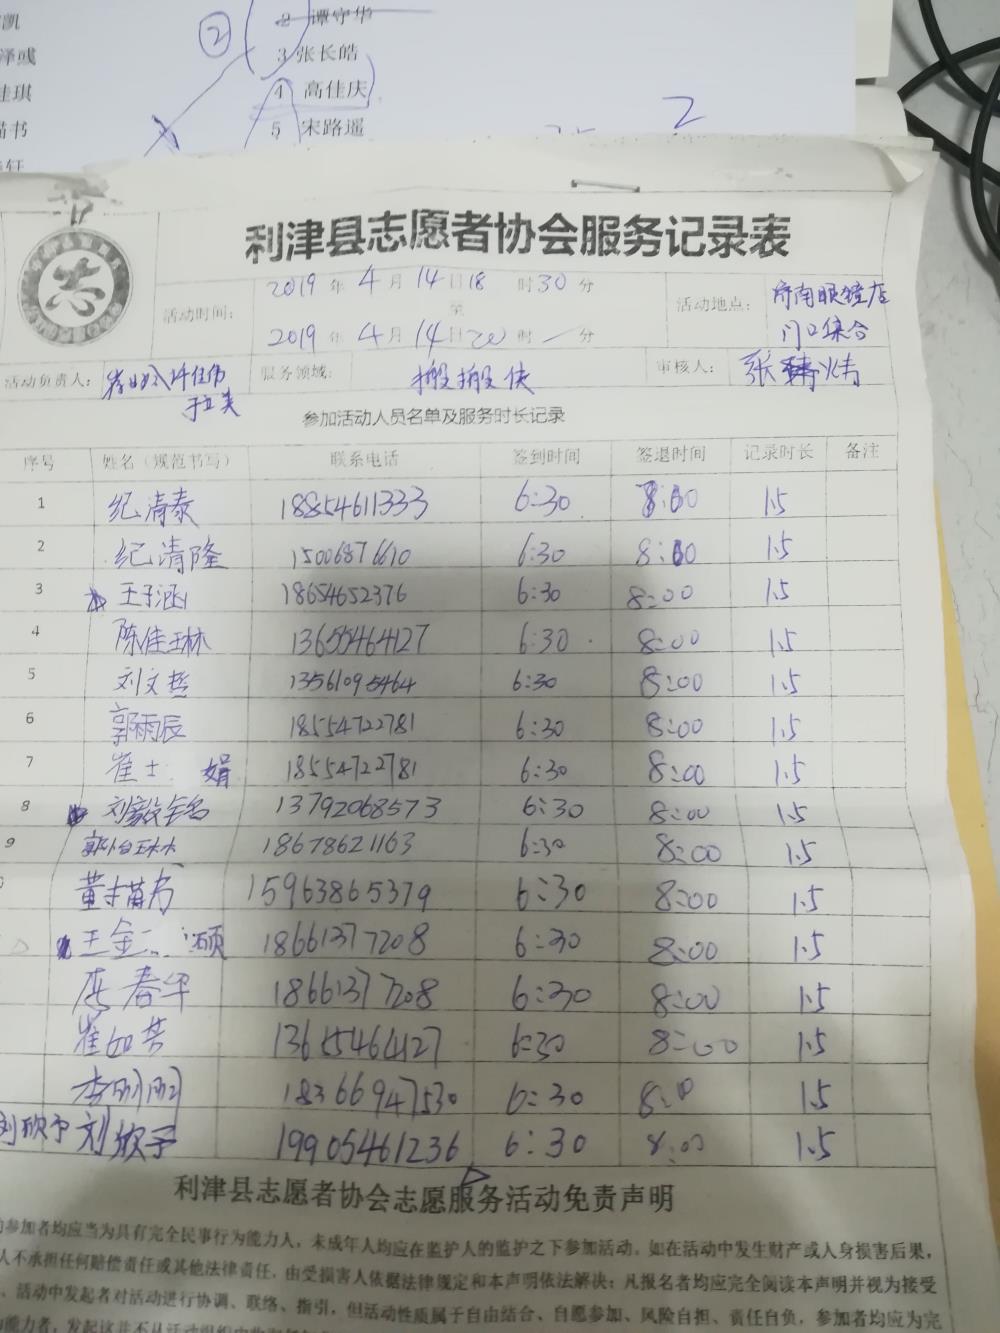 凯
2 谭守华
泽彧
②
3 张长皓
佳琪
4 高佳庆
5 宋路遥
2
利津县志愿者协会服务记录表
志
活动时间：
2019 年 4 月 14 日 18 时 30 分
至
2019 年 4 月 14 日 20 时 — 分
活动地点：
济南眼镜店
门口集合
活动负责人：
服务领域：
搬搬侠
审核人：
参加活动人员名单及服务时长记录
序号 姓名（规范书写） 联系电话 签到时间 签退时间 记录时长 备注
1 纪清泰 18854611333 6:30 8:00 1.5
2 纪清隆 15006876610 6:30 8:00 1.5
3 王子涵 18654652376 6:30 8:00 1.5
4 陈佳琳 13655464127 6:30 8:00 1.5
5 刘文哲 13561095464 6:30 8:00 1.5
6 郭雨辰 18554722781 6:30 8:00 1.5
7 崔士 娟 18554722781 6:30 8:00 1.5
8 刘毅铭 13792068573 6:30 8:00 1.5
9 郭怡琳 18678621163 6:30 8:00 1.5
董 15963865379 6:30 8:00 1.5
王金 硕 18661377208 6:30 8:00 1.5
唐春华 18661377208 6:30 8:00 1.5
崔如芸 13655464127 6:30 8:00 1.5
李明明 18366947530 6:30 8:0 1.5
刘欣予 刘欣予 19905461236 6:30 8:00 1.5
利津县志愿者协会志愿服务活动免责声明
参加者均应当为具有完全民事行为能力人，未成年人均应在监护人的监护之下参加活动。如在活动中发生财产或人身损害后果，
人不承担任何赔偿责任或其他法律责任，由受损害人依据法律规定和本声明依法解决；凡报名者均应完全阅读本声明并视为接受
。活动中发起者对活动进行协调、联络、指引，但活动性质属于自由结合、自愿参加、风险自担、责任自负，参加者均应为完